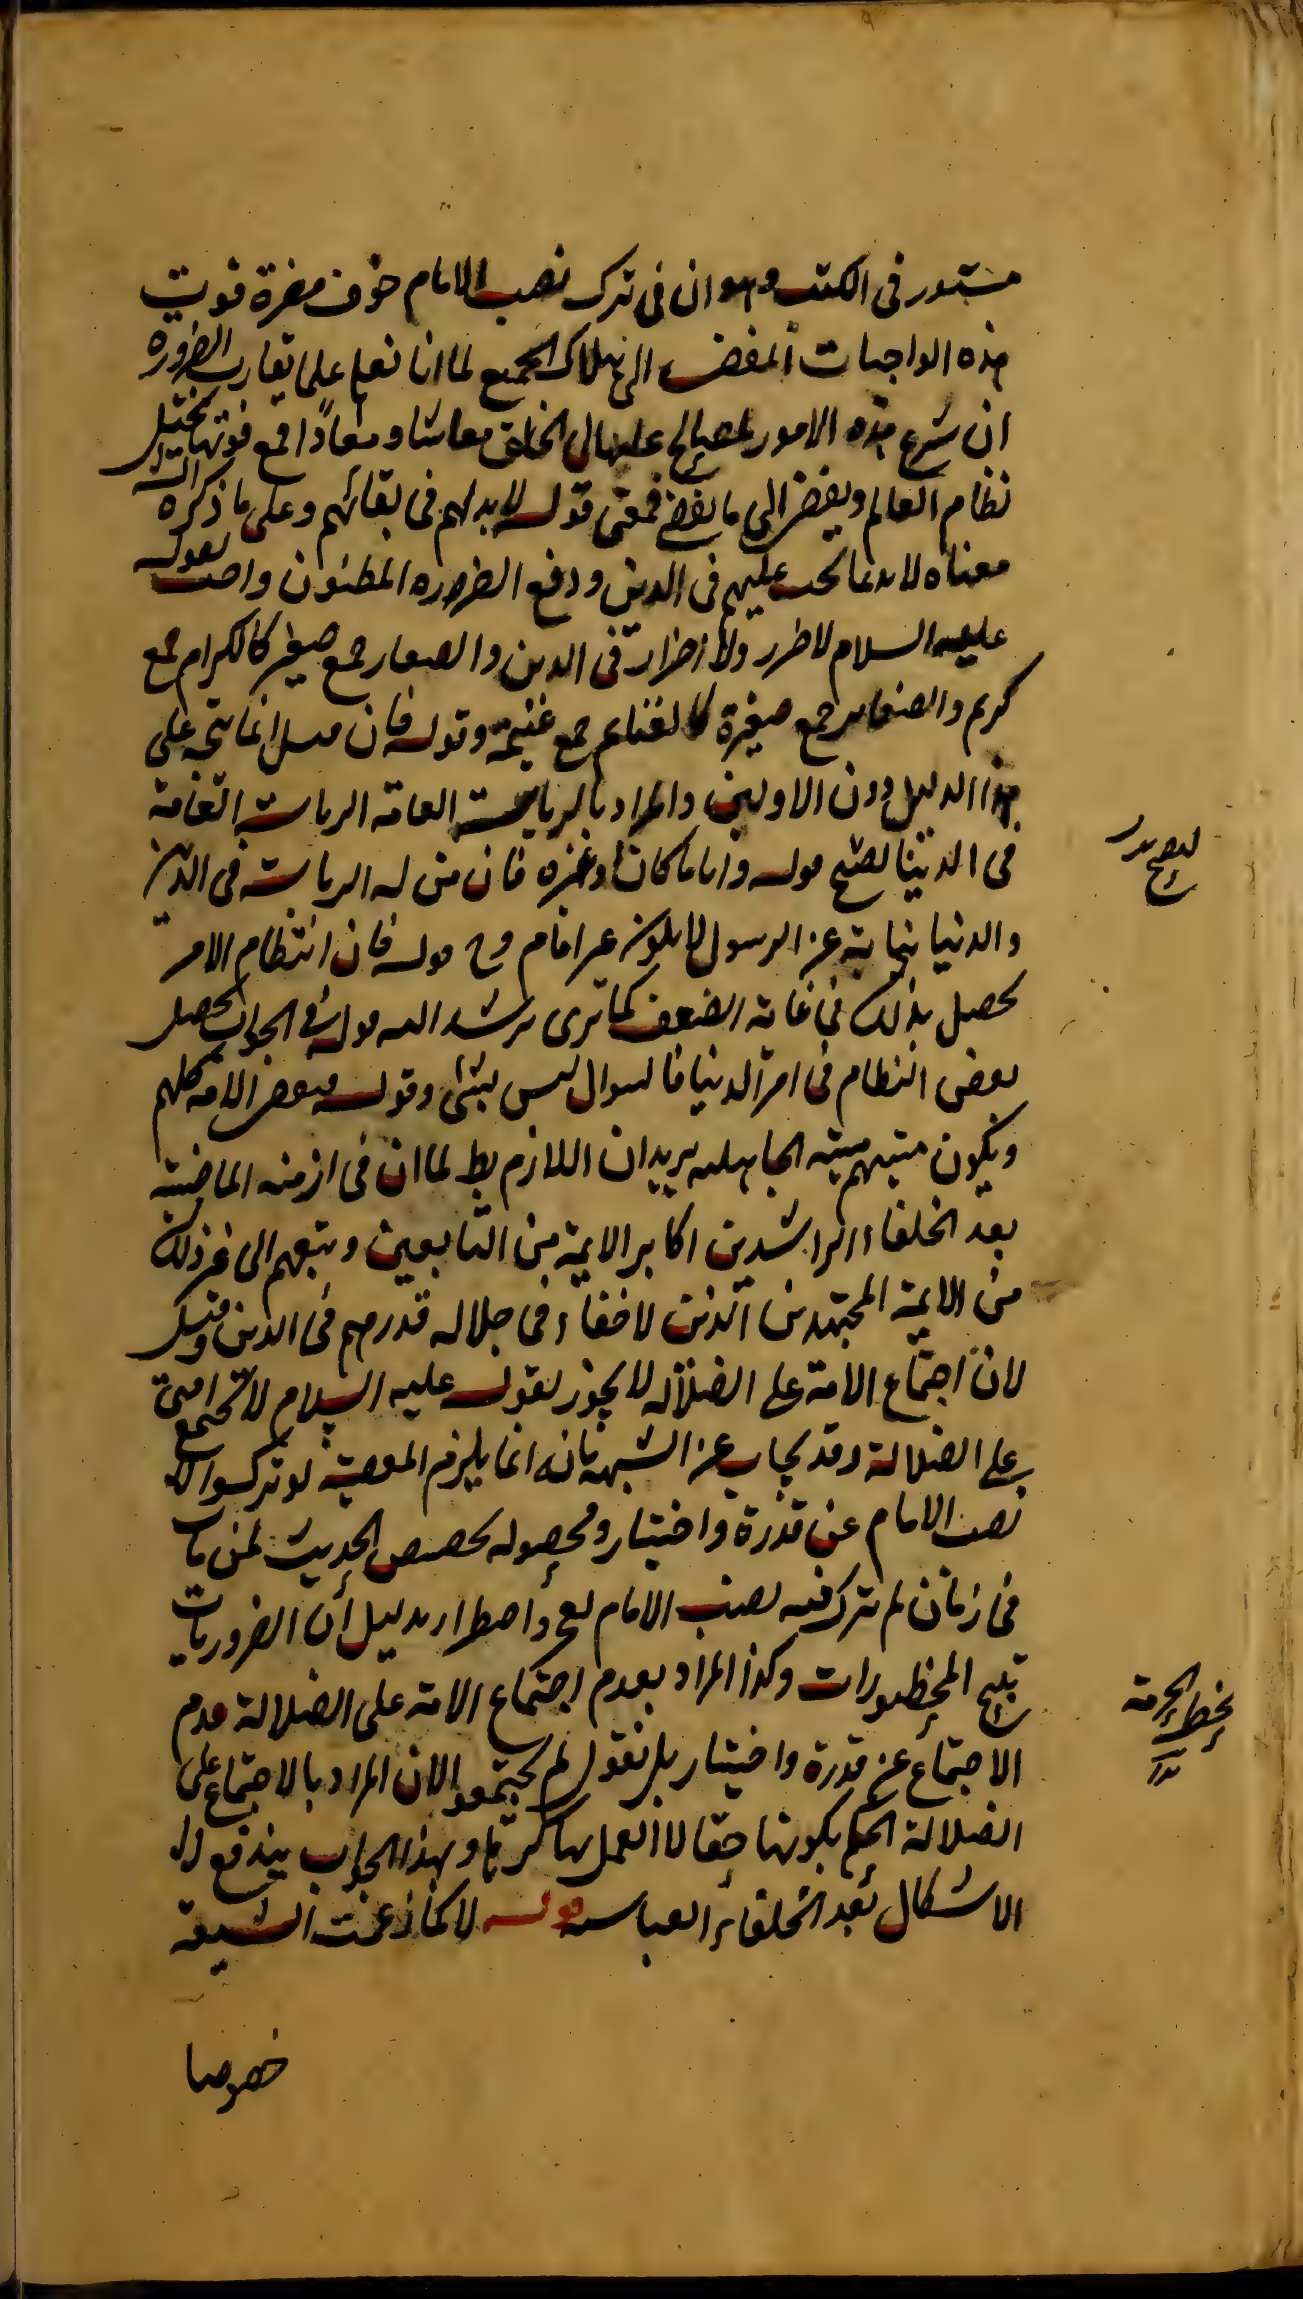 مشهور فى الكتب وهو ان فى ترك نصب الامام خوف مضرة فوت
هذه الواجبات المفضى الى هلاك الجميع لما انا نعلم علما يقارب الضرورة
ان شرع هذه الامور لمصالح عليها الخلق معاشا ومعادا فمع فوتها يختل
نظام العالم ويفضى الى ما يفضى فمعنى قوله لابد لهم فى بقائهم وعلى ما ذكره
معناه لابد مما يجب عليهم فى الدين ودفع الضرورة المظنون واجب لقوله
عليه السلام لا ضرر ولا اضرار فى الدين والصغار جمع صغير كالكرام جمع
كريم والصغاير جمع صغيرة كالغنايم جمع غنيمة وقوله فان قيل انما يتجه على
هذا الدليل دون الاولين والمراد بالرياسة العامة الرياسة العامة
فى الدنيا ليصح قوله واماما كان او غيره فان من له الرياسة فى الدين
والدنيا نيابة عن الرسول لا يكون غير امام وح قوله فان انتظام الامر
يحصل بذلك فى غاية الضعف كما ترى يرشد اليه قوله فى الجواب يحصل
بعض النظام فى امر الدنيا فالسوال ليس بشئ وقوله فيعصى الامة كلهم
ويكون ميتتهم ميتة الجاهلية يريد ان اللازم بط لما ان فى ازمنه الماضية
بعد الخلفاء الراشدين اكابر الايمة من التابعين وتبعهم الى غير ذلك
من الايمة المجتهدين الذين لا خفاء فى جلالة قدرهم فى الدين وقيل
لان اجتماع الامة على الضلالة لا يجوز لقوله عليه السلام لا تجتمع امتى
على الضلالة وقد يجاب عن الشبهة بانه انما يلزم المعصية لو تركوا
نصب الامام عن قدرة واختيار ومحصوله تخصيص الحديث لمن مات
فى زمان لم يترك فيه نصب الامام لعجز واضطرار بدليل ان الضروريات
تبيح المحظورات وكذا المراد بعدم اجتماع الامة على الضلالة عدم
الاجتماع عن قدرة واختيار بل نقول لم يجتمعوا لان المراد بالاجتماع على
الضلالة الحكم بكونها حقا لا العمل بها كرها وبهذا الجواب يندفع
الاشكال بعد الخلفاء العباسية قوله لا كما زعمت الشيعة
خصوصا